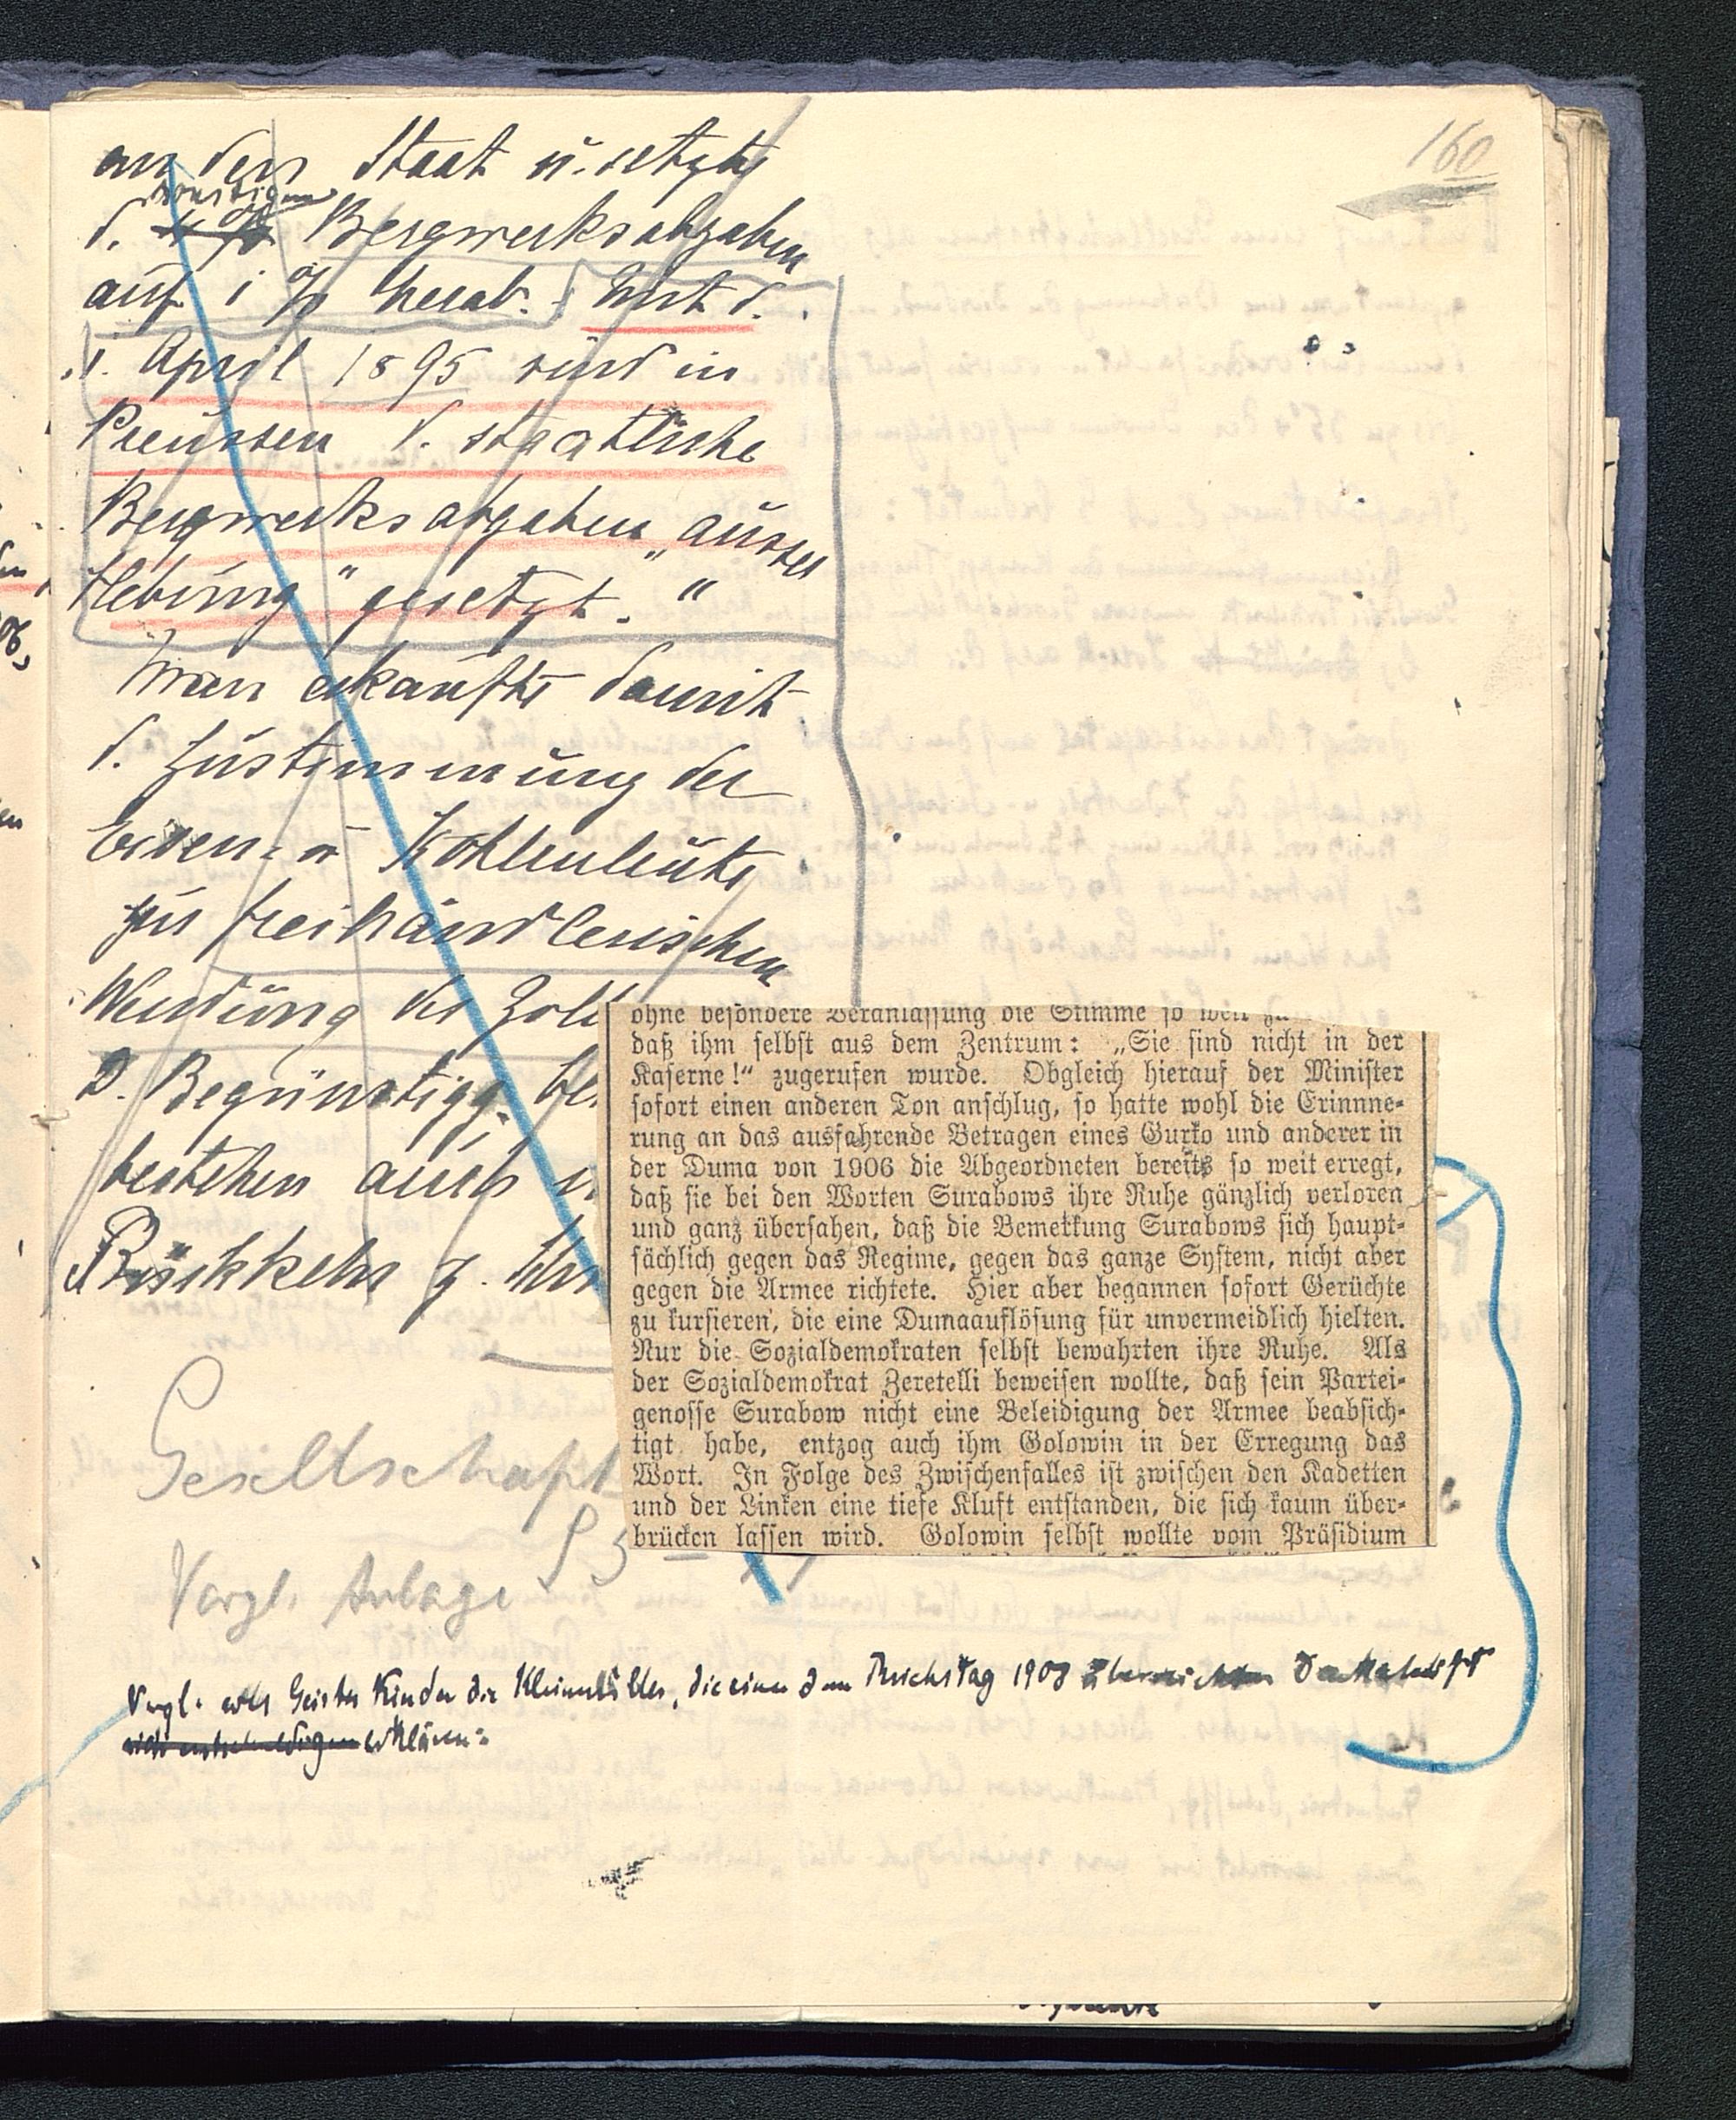 160
an den Staat u. setzte
sonstigen
d. Bergwerksabgaben
auf 1 % herab. Mit d.
1. April 1895 sind in
Preussen d. staatliche
Bergwerksabgaben „ausser
Hebung" gesetzt. "
Man erkaufte damit
d. Zustimmung der
Eisen- u Kohlenleute
zur freihändlerischen
Wendung der Zoll
D. Begünstigg.
bestehen auch
Rückkehr z.
ohne besondere Veranlassung die Stimme so weit
daß ihm selbst aus dem Zentrum: „Sie sind nicht in der
Kaserne!“ zugerufen wurde. Obgleich hierauf der Minister
sofort einen anderen Ton anschlug, so hatte wohl die Erinnne-
rung an das ausfahrende Betragen eines Gurko und anderer in
der Duma von 1906 die Abgeordneten bereits so weit erregt,
daß sie bei den Worten Surabows ihre Ruhe gänzlich verloren
und ganz übersahen, daß die Bemerkung Surabows sich haupt-
sächlich gegen das Regime, gegen das ganze System, nicht aber
gegen die Armee richtete. Hier aber begannen sofort Gerüchte
zu kursieren, die eine Dumaauflösung für unvermeidlich hielten.
Nur die Sozialdemokraten selbst bewahrten ihre Ruhe. Als
der Sozialdemokrat Zeretelli beweisen wollte, daß sein Partei-
genosse Surabow nicht eine Beleidigung der Armee beabsich-
tigt habe, entzog auch ihm Golowin in der Erregung das
Wort. In Folge des Zwischenfalles ist zwischen den Kadetten
und der Linken eine tiefe Kluft entstanden, die sich kaum über-
brücken lassen wird. Golowin selbst wollte vom Präsidium
Gesellschaft
Vergl. Anlage
Vergl. Geistes Kinder die Kleinmüller, die einen dem Reichstag 1908
erklären: